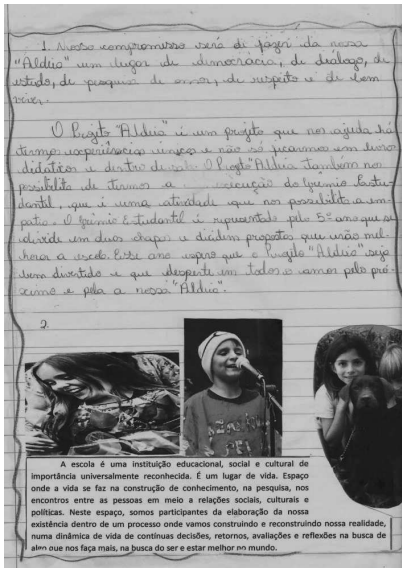 1. Nosso compromisso será di fazer da nossa
"Aldeia" um lugar de democrácia, de diálogo, de
estudo, de pesquisa de amor, de respeito e de bem
viver.
O Projeto "Aldeia" é um projeto que nos ajuda há
termos experiências únicas e não só ficarmos em livros
didáticos e dentro de sala. O Projeto "Aldeia também nos
possibilita de termos a execução do Grêmio Estu-
dantil, que é uma atividade que nos possibilita a em-
patia. O Grêmio Estudantil é representado pelo 5º ano que se
divide em duas chapas e decidem propostas que irão mel-
horar a escola. Esse ano espero que o Projeto "Aldeia" seja
bem divertido e que desperte em todos o amor pelo pró-
ximo e pela a nossa "Aldeia".
2.
A escola é uma instituição educacional, social e cultural de
importância universalmente reconhecida. É um lugar de vida. Espaço
onde a vida se faz na construção de conhecimento, na pesquisa, nos
encontros entre as pessoas em meio a relações sociais, culturais e
políticas. Neste espaço, somos participantes da elaboração da nossa
existência dentro de um processo onde vamos construindo e reconstruindo nossa realidade,
numa dinâmica de vida de contínuas decisões, retornos, avaliações e reflexões na busca de
algo que nos faça mais, na busca do ser e estar melhor no mundo.